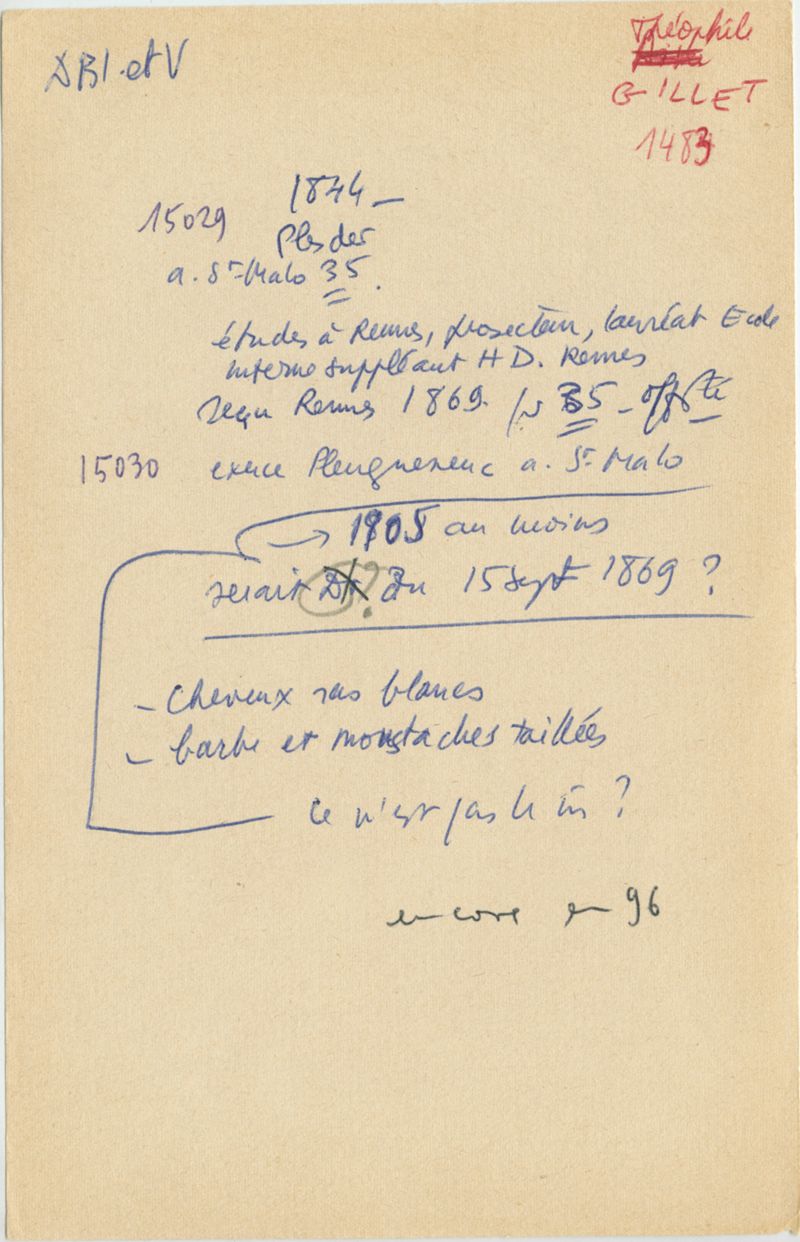 DBI et V
Théophile
GILLET
1483
1844 –
15029
Plesder
a. St-Malo 35.
études à Rennes, prosecteur, lauréat Ecole
interne suppléant H D. Rennes
reçu Rennes 1869 35 – off. té
15030 exerce Pleugueneuc a. St Malo
→ 1905 au moins
serait Du 15 Sept 1869 ?
– Cheveux ras blancs
– barbe et moustaches taillées
Ce n'est pas le ?
encore en 96